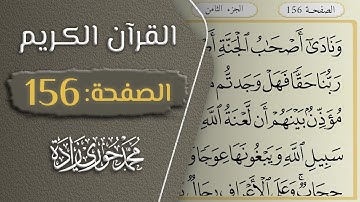 القرآن الكريم
الصفحة: 156
محمد حوري زادة
الصفحة 156
الجزء الثامن
وَنَادَىٰٓ أَصْحَٰبُ ٱلْجَنَّةِ
رَبُّنَا حَقًّا فَهَلْ وَجَدتُّم
مُؤَذِّنٌۢ بَيْنَهُمْ أَن لَّعْنَةُ ٱللَّهِ
سَبِيلِ ٱللَّهِ وَيَبْغُونَهَا عِوَجًا
حِجَابٌ ۚ وَعَلَى ٱلْأَعْرَافِ رِجَالٌ